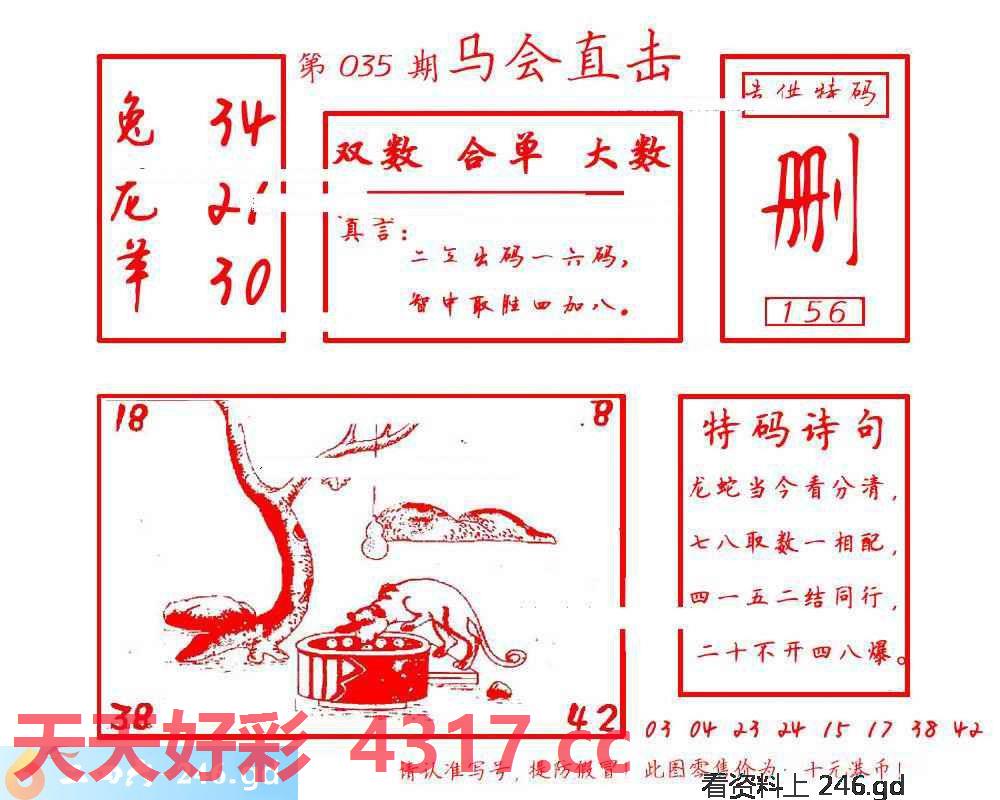 第 035 期 马会直击
兔 34
龙 21
羊 30
双数 合单 大数
真言:
二五出码一六码,
智中取胜四加八。
供特码
删
156
18
8
38
42
特码诗句
龙蛇当今看分清,
七八取数一相配,
四一五二结同行,
二十不开四八爆。
03 04 23 24 15 17 38 42
天天好彩 4317.cc
246.gd
请认准写号,提防假冒! 此图零售价为:十元港币!
看资料上 246.gd